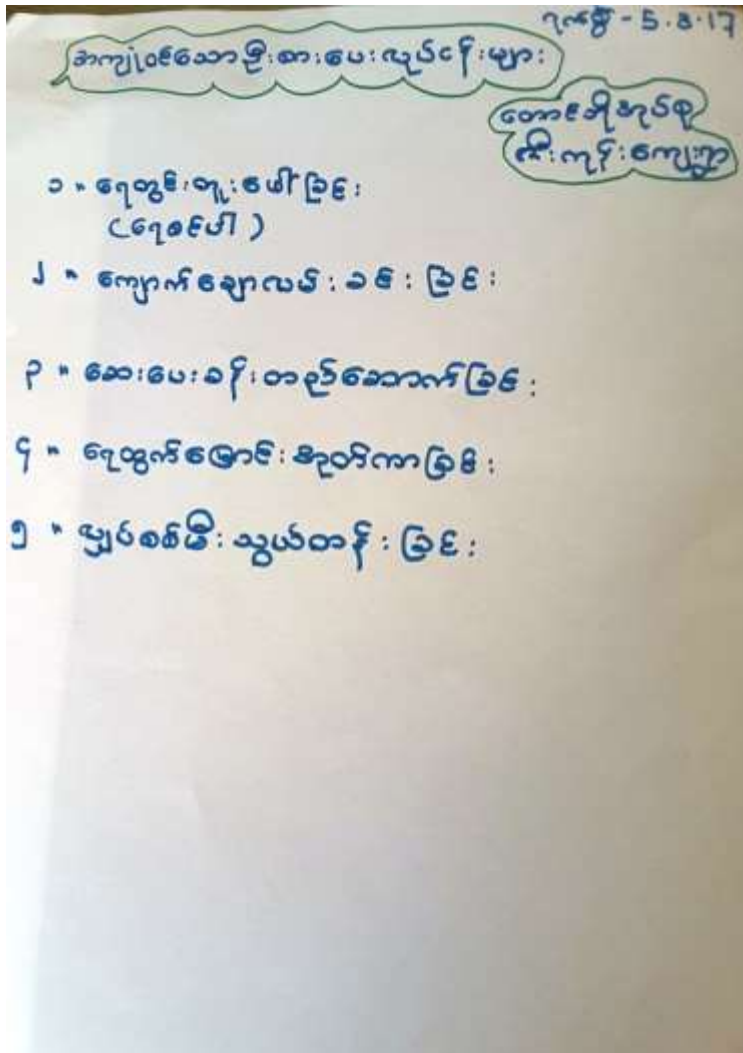 ရက်စွဲ - 5.8.17
အကျုံးဝင်သောဦးစားပေးလုပ်ငန်းများ
တောင်ဘိုအုပ်စု
ကြီးကုန်းကျေးရွာ
၁။ ရေတွင်းတူးဖေါ်ခြင်း
(ရေစင်ပါ)
၂။ ကျောက်ချောလမ်းခင်းခြင်း
၃။ ဆေးပေးခန်းတည်ဆောက်ခြင်း
၄။ ရေထွက်မြောင်းအုတ်ကာခြင်း
၅။ လျှပ်စစ်မီးသွယ်တန်းခြင်း